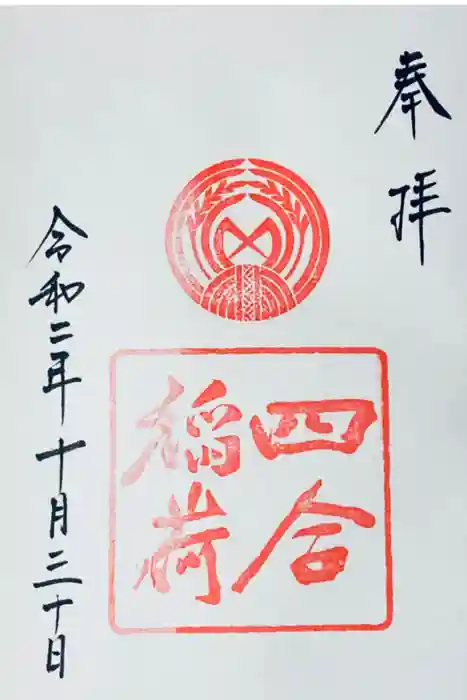 奉拝
四合
稲荷
令和二年十月三十日